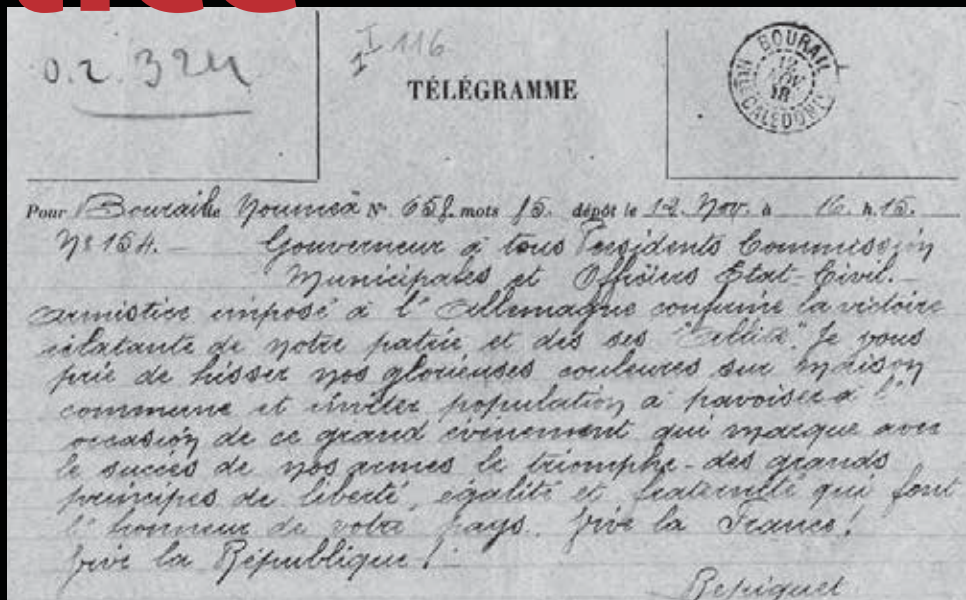 0.2.324
I 116
TÉLÉGRAMME
BOURAIL
12
NOV
18
Nlle CALÉDONIE
Pour Bourail de Nouméa N° 658 mots 75. dépôt le 12. Nov. à 16. h. 15.
N° 154. — Gouverneur à tous Présidents Commission
Municipales et Officiers État-Civil. —
armistice imposé à l'Allemagne confirme la victoire
éclatante de notre patrie et des ses "Alliés". Je vous
prie de hisser nos glorieuses couleures sur maison
commune et inviter population à pavoiser à l'
occasion de ce grand événement qui marque avec
le succès de nos armes le triomphe - des grands
principes de liberté, égalité et fraternité qui font
l'honneur de votre pays. Vive la France!
Vive la République!
Repiquet